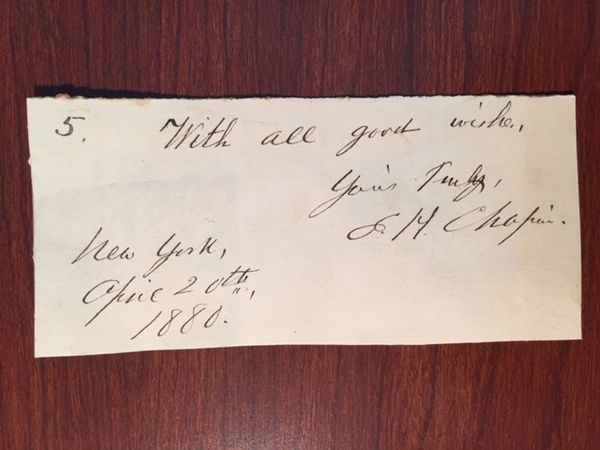 5. With all good wishes,
Yours Truly,
E H. Chapin.
New York,
April 20th,
1880.